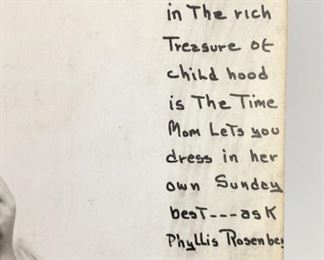 in The rich
Treasure of
child hood
is The Time
Mom Lets you
dress in her
own Sunday
best---ask
Phyllis Rosenbe